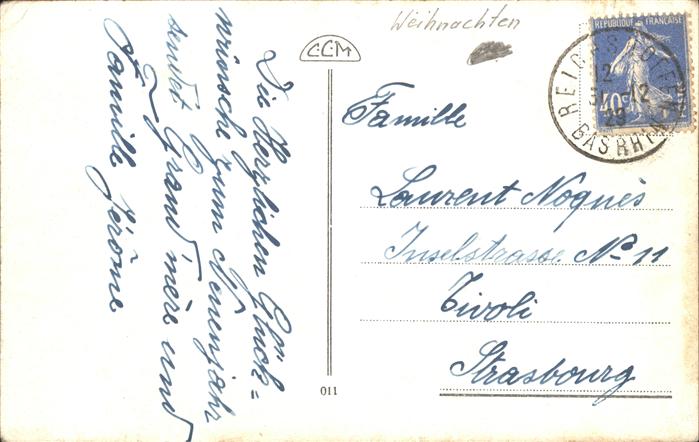 Weihnachten
CCM
REPUBLIQUE FRANÇAISE
40c
REICHSHOFFEN
12
31-12
29
BAS RHIN
Die Herzlichen Glück=
wünsche zum Neuenjahr
sendet Grand'mère und
Familie Jérôme
Famille
Laurent Noquès
Inselstrasse No 11
Tivoli
Strasbourg
011